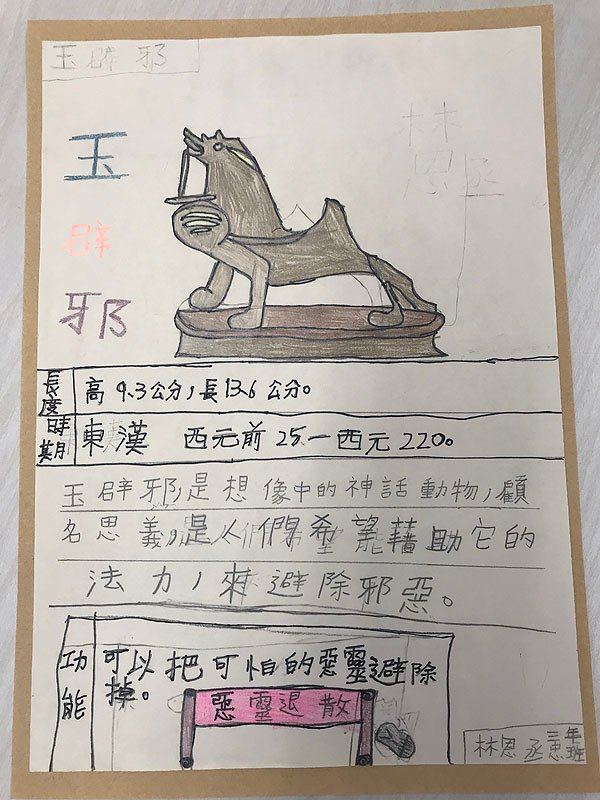 玉辟邪
林
恩丞
玉
辟
邪
長度
高9.3公分,長13.6公分。
時期
東漢 西元前25-西元220。
玉辟邪,是想像中的神話動物,顧
名思義,是人們希望藉助它的
法力,來避除邪惡。
功能
可以把可怕的惡靈避除
掉。
惡靈退散
林恩丞 三年惠班